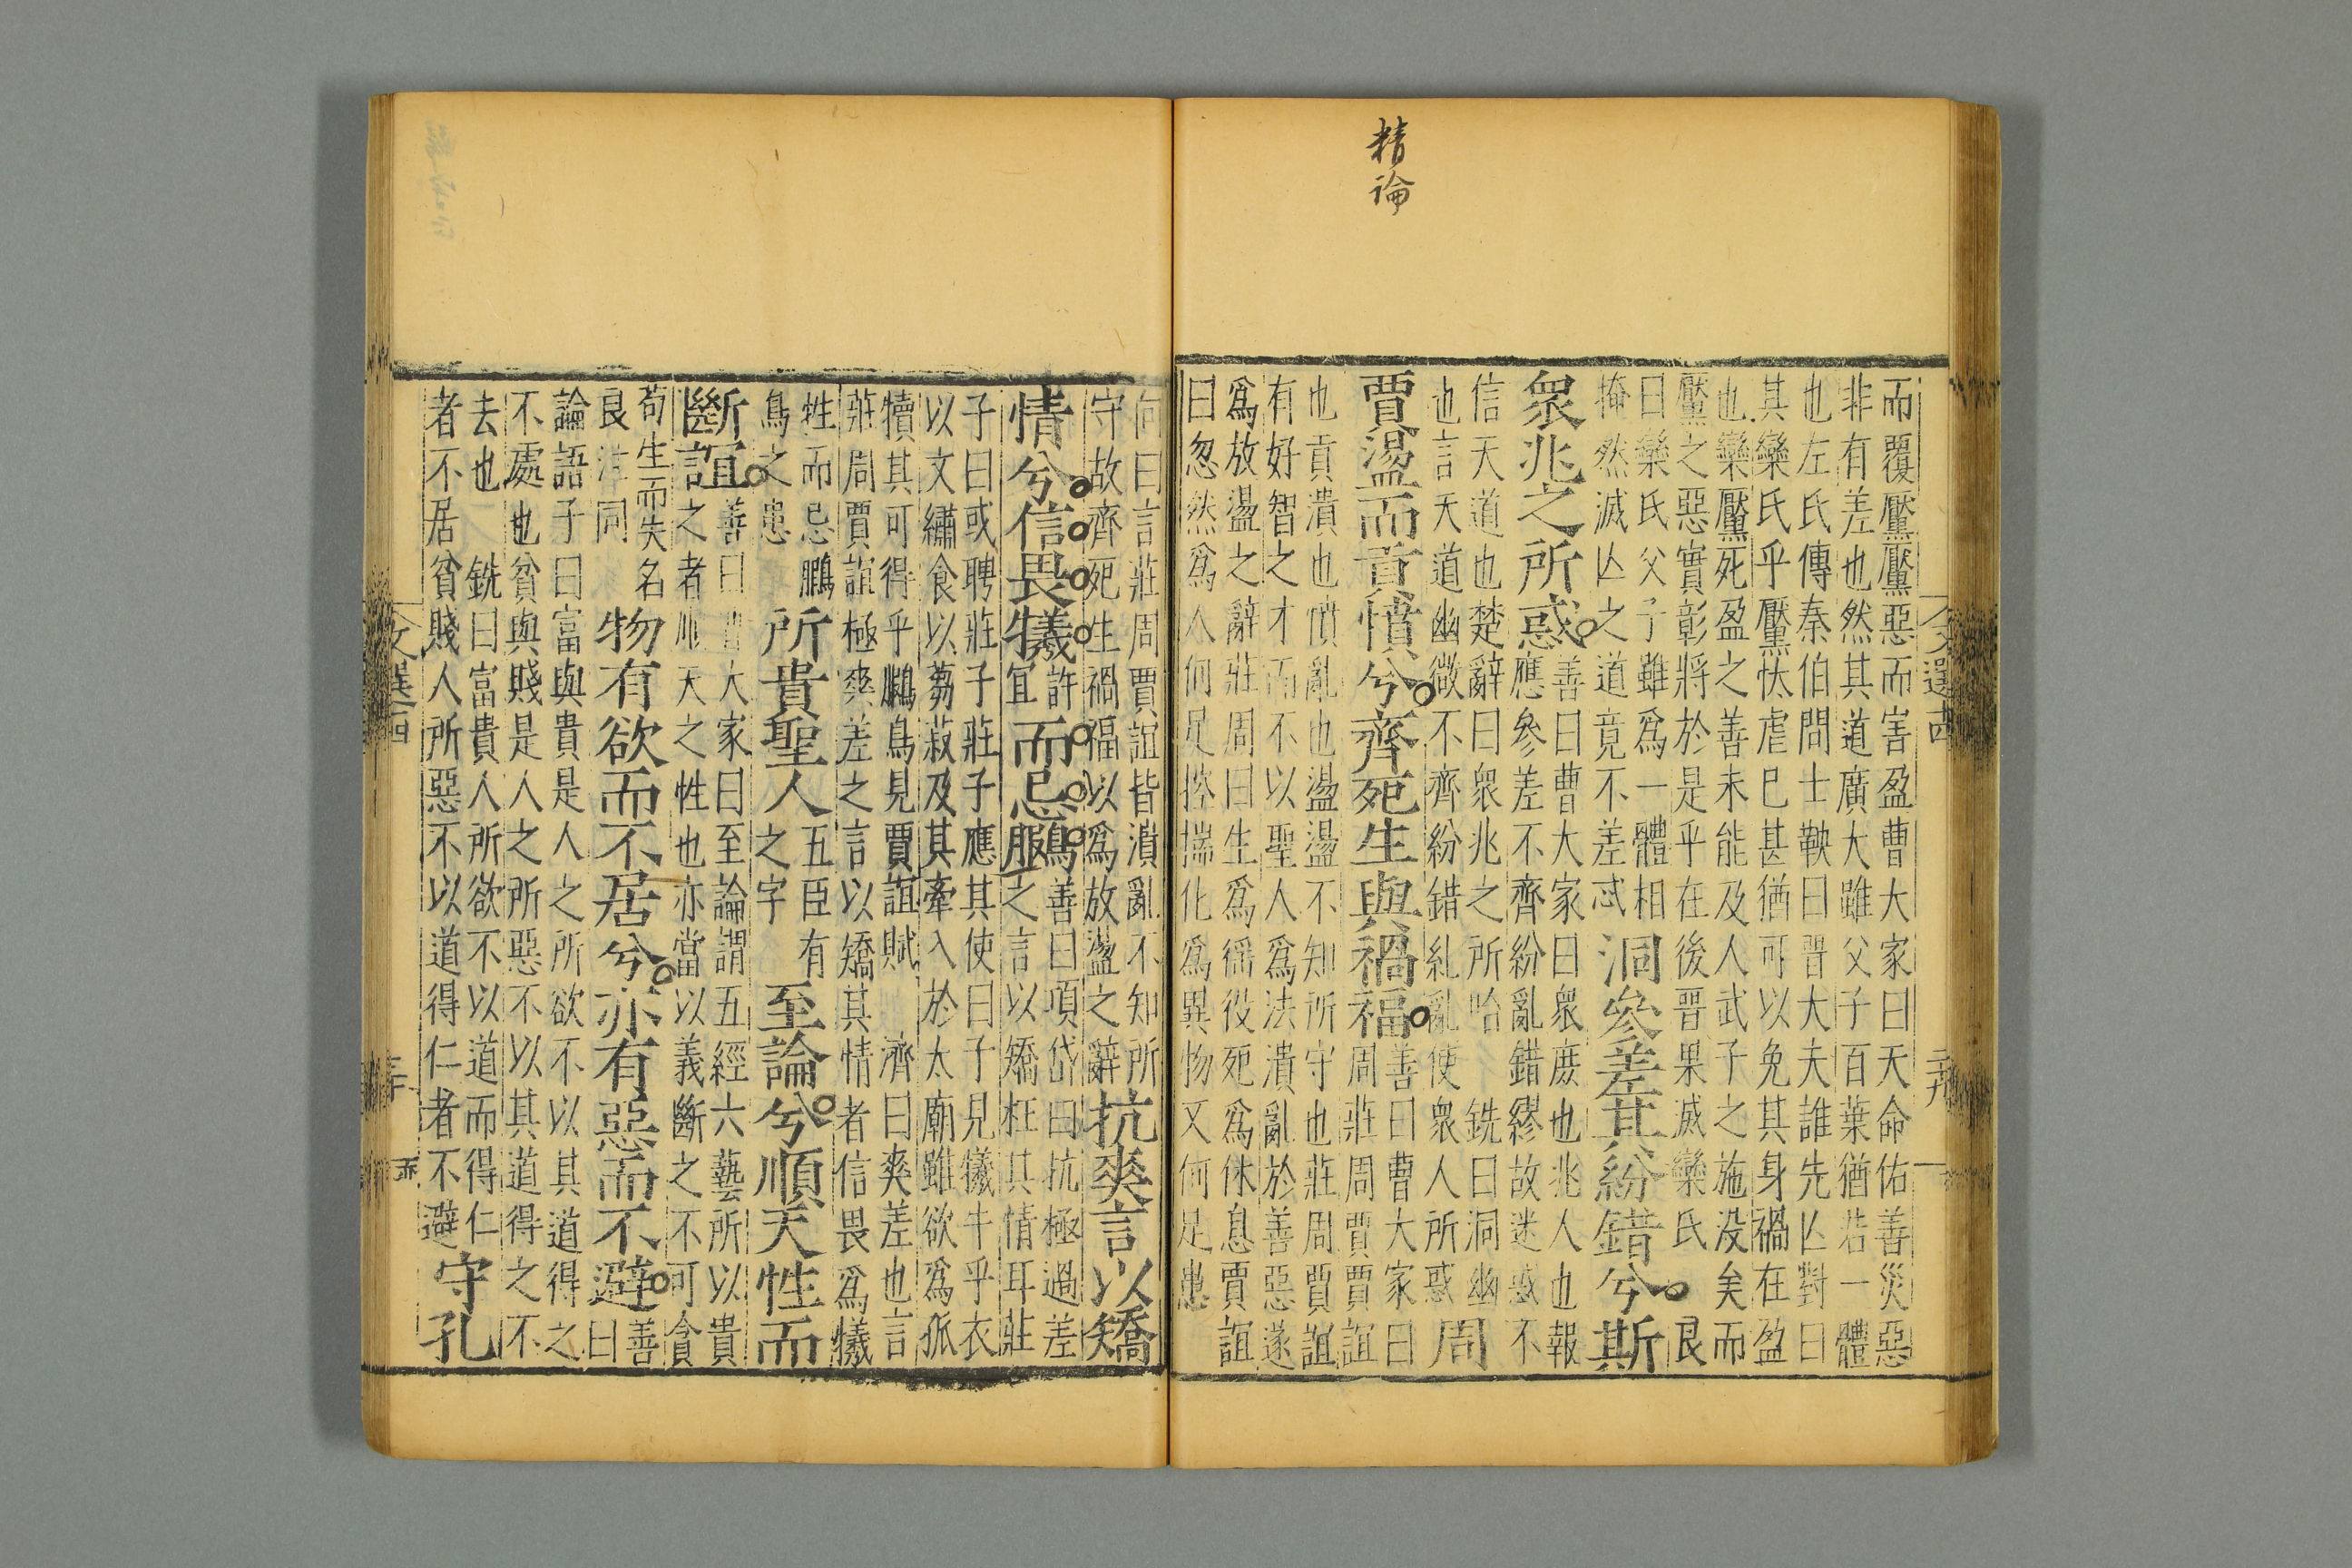 精論
而覆黶黶惡而害盈曹大家曰天命佑善災惡
非有差也然其道廣大雖父子百葉猶若一體
也左氏傳秦伯問士鞅曰晉大夫誰先亾對曰
其欒氏乎黶怢虐巳甚猶可以免其身禍在盈
也欒黶死盈之善未能及人武子之施没矣而
黶之惡實彰將於是乎在後晉果滅欒氏良
曰欒氏父子雖爲一體相
掩然滅亾之道竟不差忒
洞參差其紛錯兮斯
衆兆之所惑
善曰曹大家曰衆庶也兆人也報
應參差不齊紛亂錯繆故迷惑不
信天道也楚辭曰衆兆之所咍 銑曰洞幽
也言天道幽微不齊紛錯糺亂使衆人所惑
周
賈盪而貢憤兮齊死生與禍福
善曰曹大家曰
周莊周賈賈誼
也貢潰也憤亂也盪盪不知所守也莊周賈誼
有好智之才而不以聖人爲法潰亂於善惡遂
爲放盪之辭莊周曰生爲徭役死爲休息賈誼
曰忽然爲人何足控揣化爲異物又何足患
文選十四
二十九
向曰言莊周賈誼皆潰亂不知所
守故齊死生禍福以爲放盪之辭
抗爽言以矯
情兮信畏犧
許宜
而忌服
鵩
善曰項岱曰抗極過差
之言以矯枉其情耳莊
子曰或聘莊子莊子應其使曰子見犧牛乎衣
以文繡食以蒭菽及其牽入於太廟雖欲爲孤
犢其可得乎鵩鳥見賈誼賦 濟曰爽差也言
莊周賈誼極爽差之言以矯其情者信畏爲犧
牲而忌鵩
鳥之患
所貴聖人
五臣有
之字
至論兮順天性而
斷誼
善曰曹大家曰至論謂五經六藝所以貴
之者順天之性也亦當以義斷之不可貪
苟生而失名
良注同
物有欲而不居兮亦有惡而不避
善曰
論語子曰富與貴是人之所欲不以其道得之
不處也貧與賤是人之所惡不以其道得之不
去也 銑曰富貴人所欲不以道而得仁
者不居貧賤人所惡不以道得仁者不避
守孔
文選十四
三十